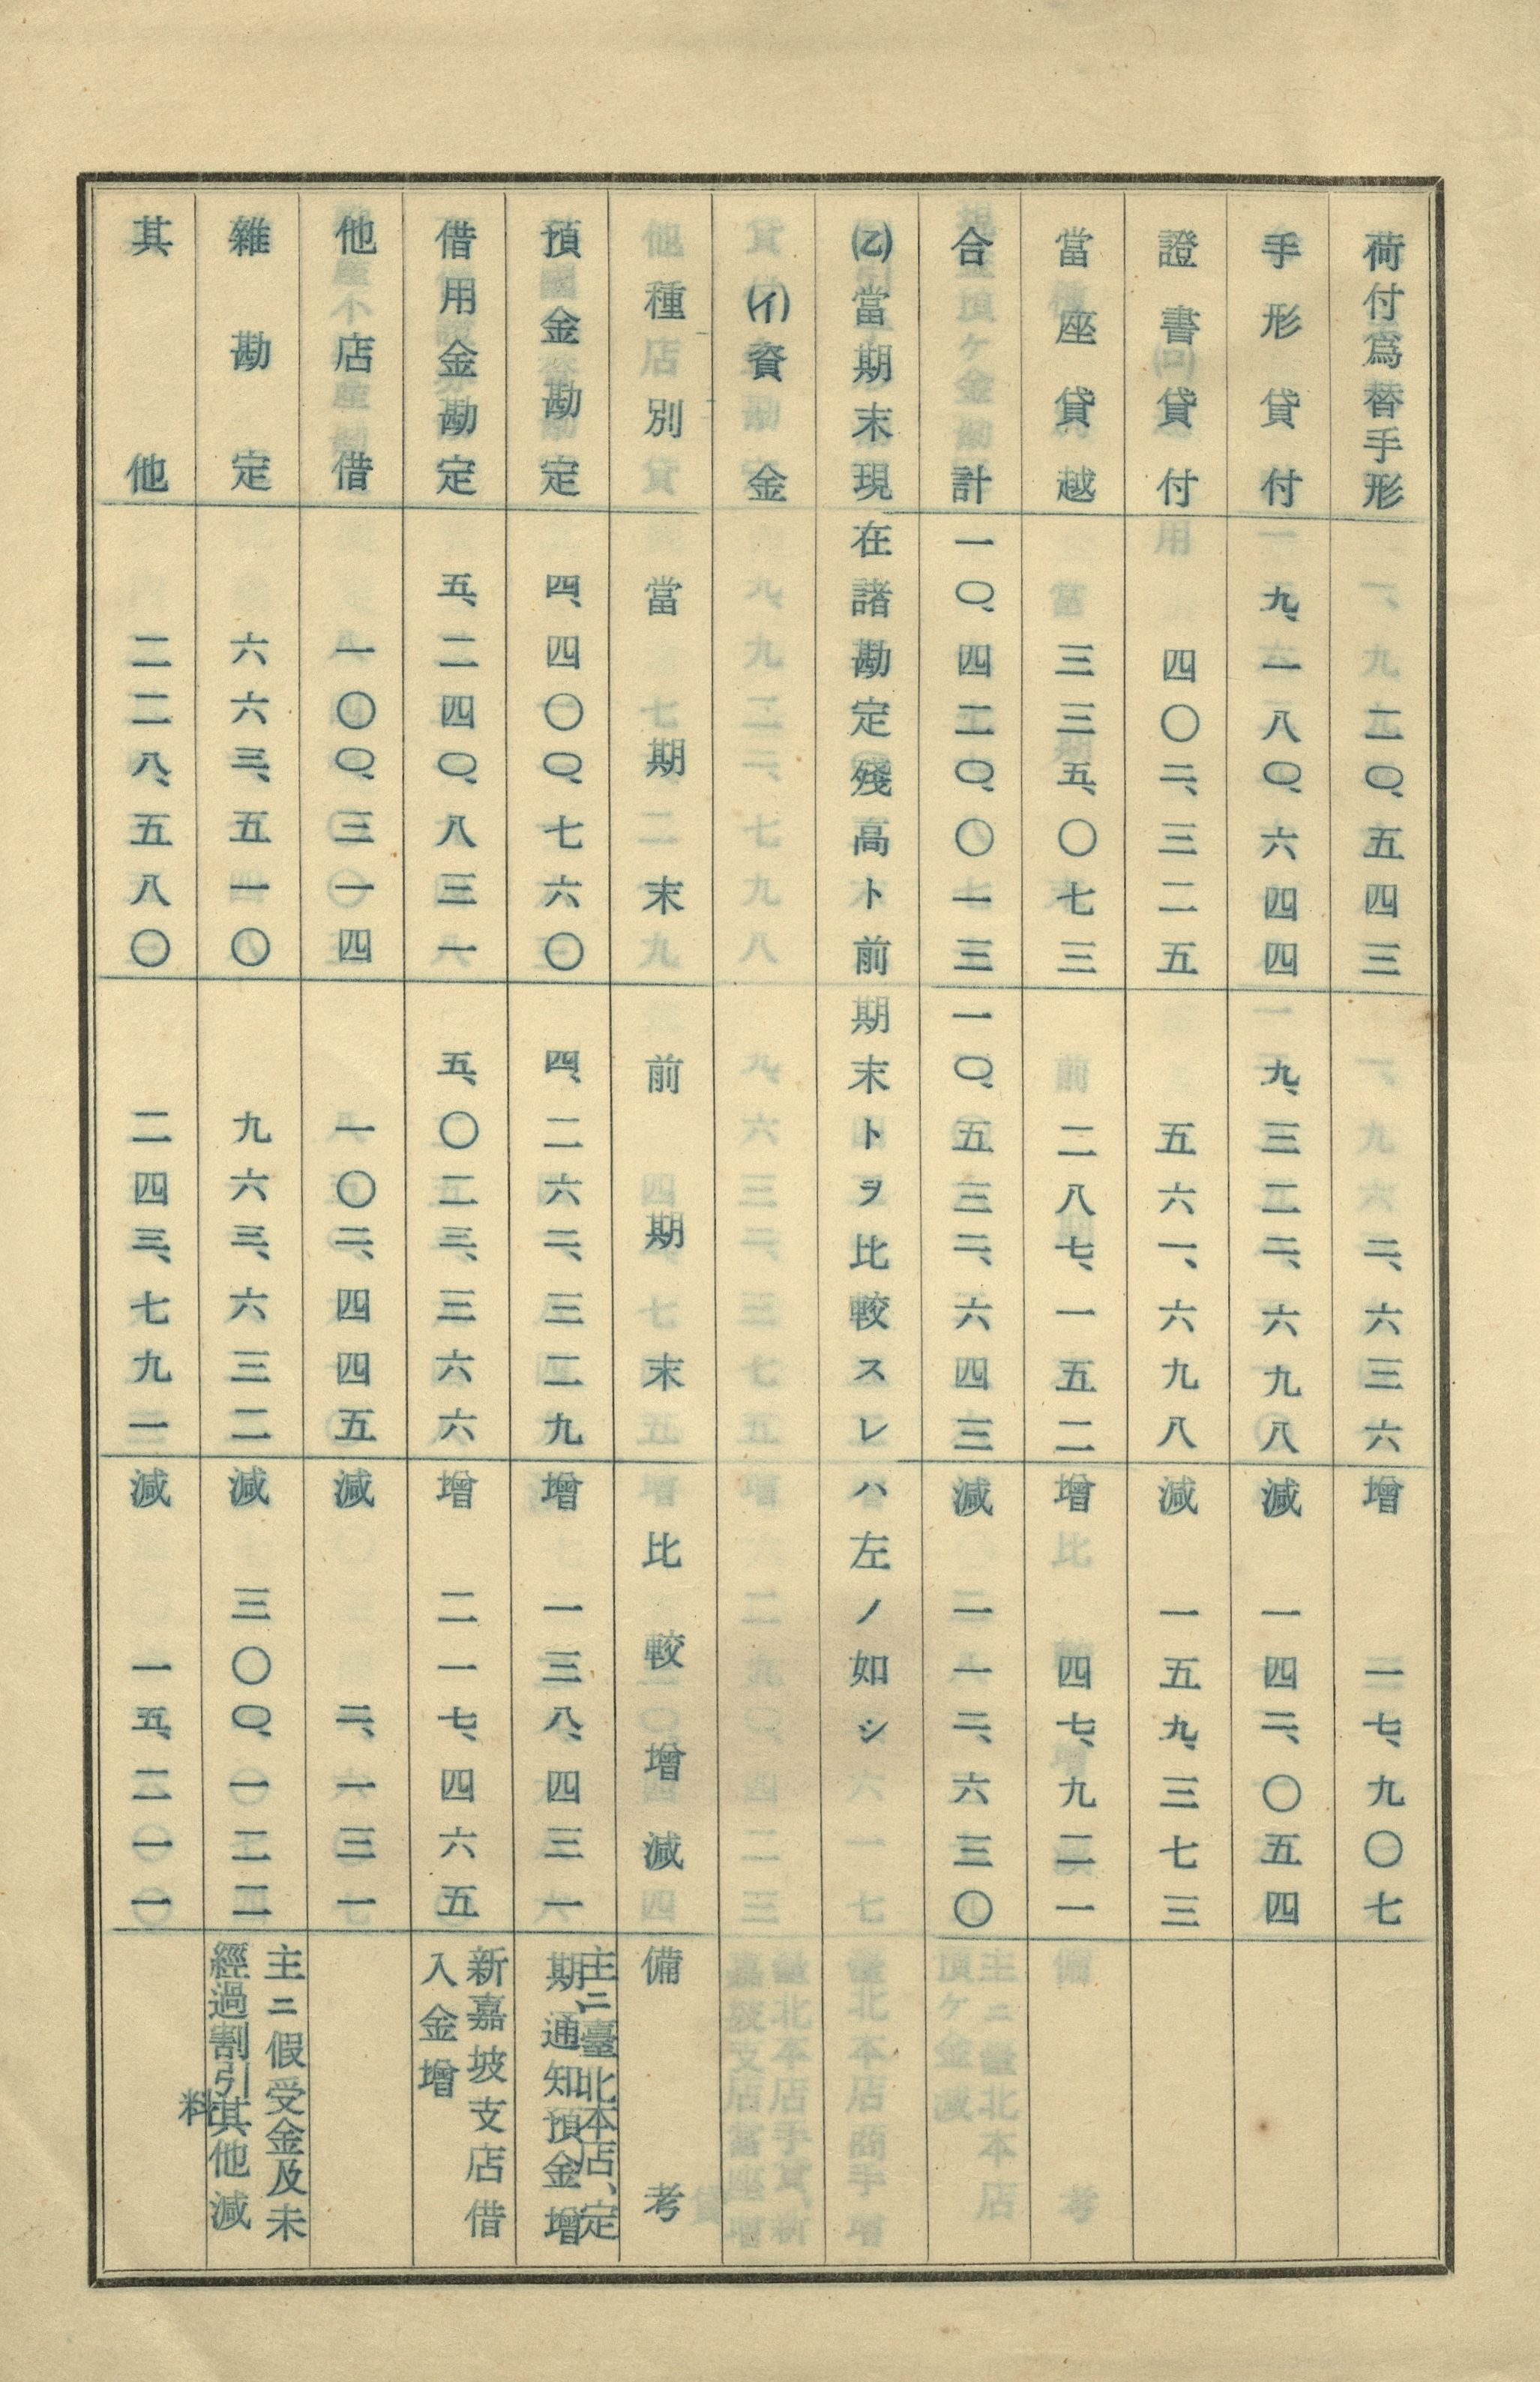 荷付爲替手形 二〇、五四三 二、六三六 增 一七、九〇七
手形貸付 九、一八〇、六四四 九、三二二、六九八 減 一四二、〇五四
證書貸付 四〇二、三二五 五六一、六九八 減 一五九、三七三
當座貸越 三三五、〇七三 二八七、一五二 增 四七、九二一
合計 一〇、四二〇、〇一三 一〇、五三二、六四三 減 一一二、六三〇
(乙)當期末現在諸勘定殘高ト前期末トヲ比較スレハ左ノ如シ
(イ)資金
種別 當期末 前期末 比較增減 備考
預金勘定 四、四〇〇、七六〇 四、二六二、三二九 增 一三八、四三一 主ニ臺北本店、定期、通知預金增
借用金勘定 五、二四〇、八三一 五、〇二三、三六六 增 二一七、四六五 新嘉坡支店借入金增
他店借 一〇〇、三一四 一〇二、四四五 減 二、一三一
雜勘定 六六三、五一〇 九六三、六三二 減 三〇〇、一二二 主ニ假受金及未經過割引料其他減
其他 二二八、五八〇 二四三、七九一 減 一五、二一一